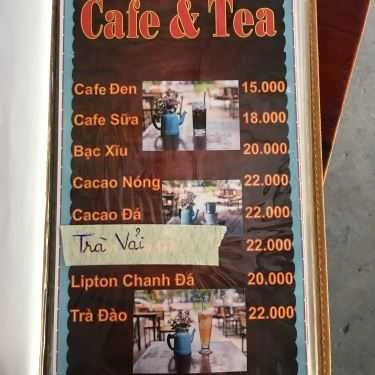 Cafe & Tea
Cafe Đen 15.000
Cafe Sữa 18.000
Bạc Xĩu 20.000
Cacao Nóng 22.000
Cacao Đá 22.000
Trà Vải 22.000
Lipton Chanh Đá 20,000
Trà Đào 22.000